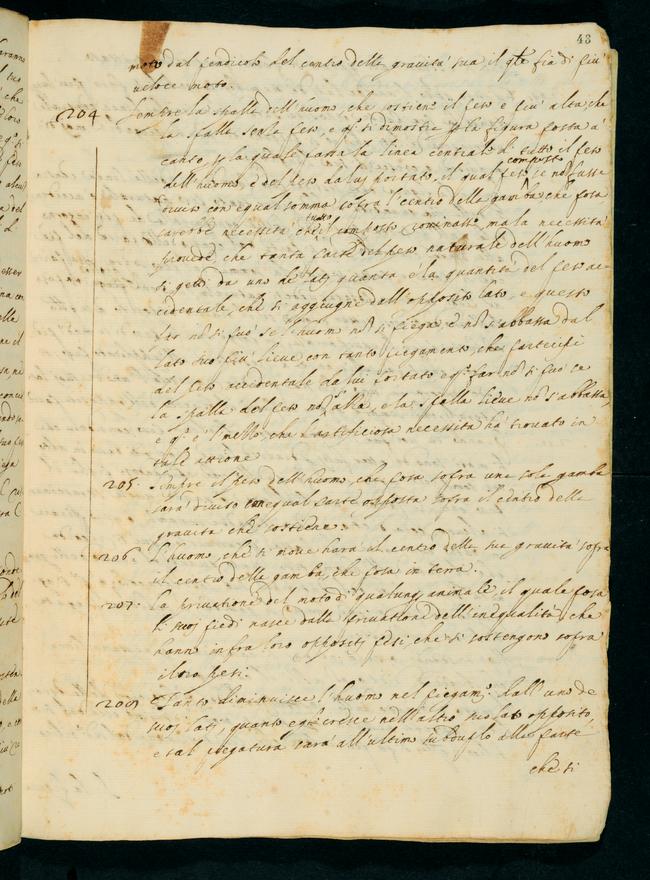 43
moto dal pendicolo del centro della gravità sua il qle fia di più
veloce moto.
204 Sempre la spalla dell'huomo, che sostiene il peso è più alta, che
la spalla senza peso, e qto si dimostra p la figura posta a
canto, p la quale passa la linea centrale di tutto il peso
dell'huomo, e del peso da lui portato, il qual peso composto se nō fusse
diviso con equal somma sopra l'centro della gamba che posa
sarebbe necessità che tutto il composto rovinasse, ma la necessità
provede, che tanta parte del peso naturale dell'huomo
si getti da uno de lati quanta è la quantità del peso ac=
cidentale, che si aggiugne dall'opposito lato, e questo
far nō si può se l'huomo nō si piega, e nō s'abbassa dal
lato suo più lieve, con tanto piegamento, che partecipi
del peso accidentale da lui portato e qto far nō si può se
la spalla del peso nō s'alza, e la spalla lieve nō s'abbassa,
e qto è l'mezzo, che l'artificiosa necessità ha trovato in
tale attione
205. Sempre il peso dell'huomo, che posa sopra una sola gamba
sarà diviso con equal parte opposta sopra il centro della
gravità che sostiene.
206. L'huomo, che si move harà il centro della sua gravità sopra
il centro della gamba, che posa in terra.
207. La privatione del moto di qualunq animale, il quale posa
li suoi piedi nasce dalla privatione dell'inequalità, che
hanno infra loro oppositi pesi, che si sostengono sopra
i loro pesi.
209 Tanto diminuisce l'huomo nel piegamto. dall'uno de
suoi lati, quanto egli cresce nell'altro suo lato opposito,
e tal piegatura sarà all'ultimo subduplo alla parte
che si